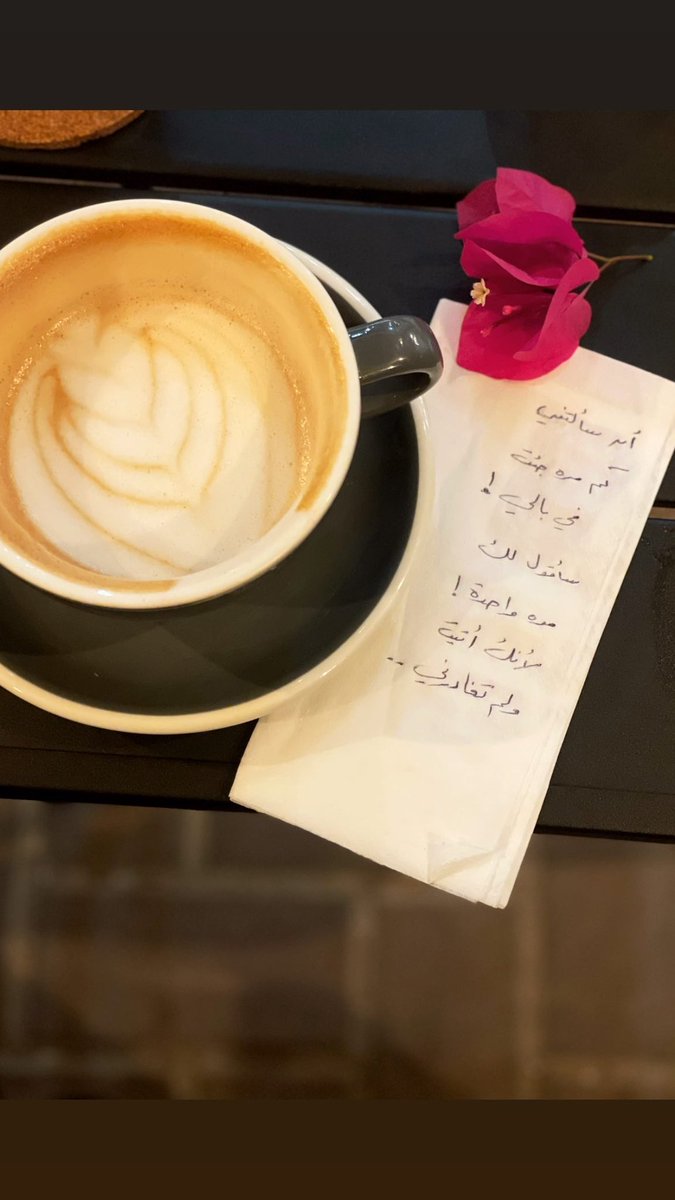 أن سألتني
كم مره جئت
في بالي !
سأقول لك
مره واحدة !
لأنك أتيت
ولم تغادرني ..